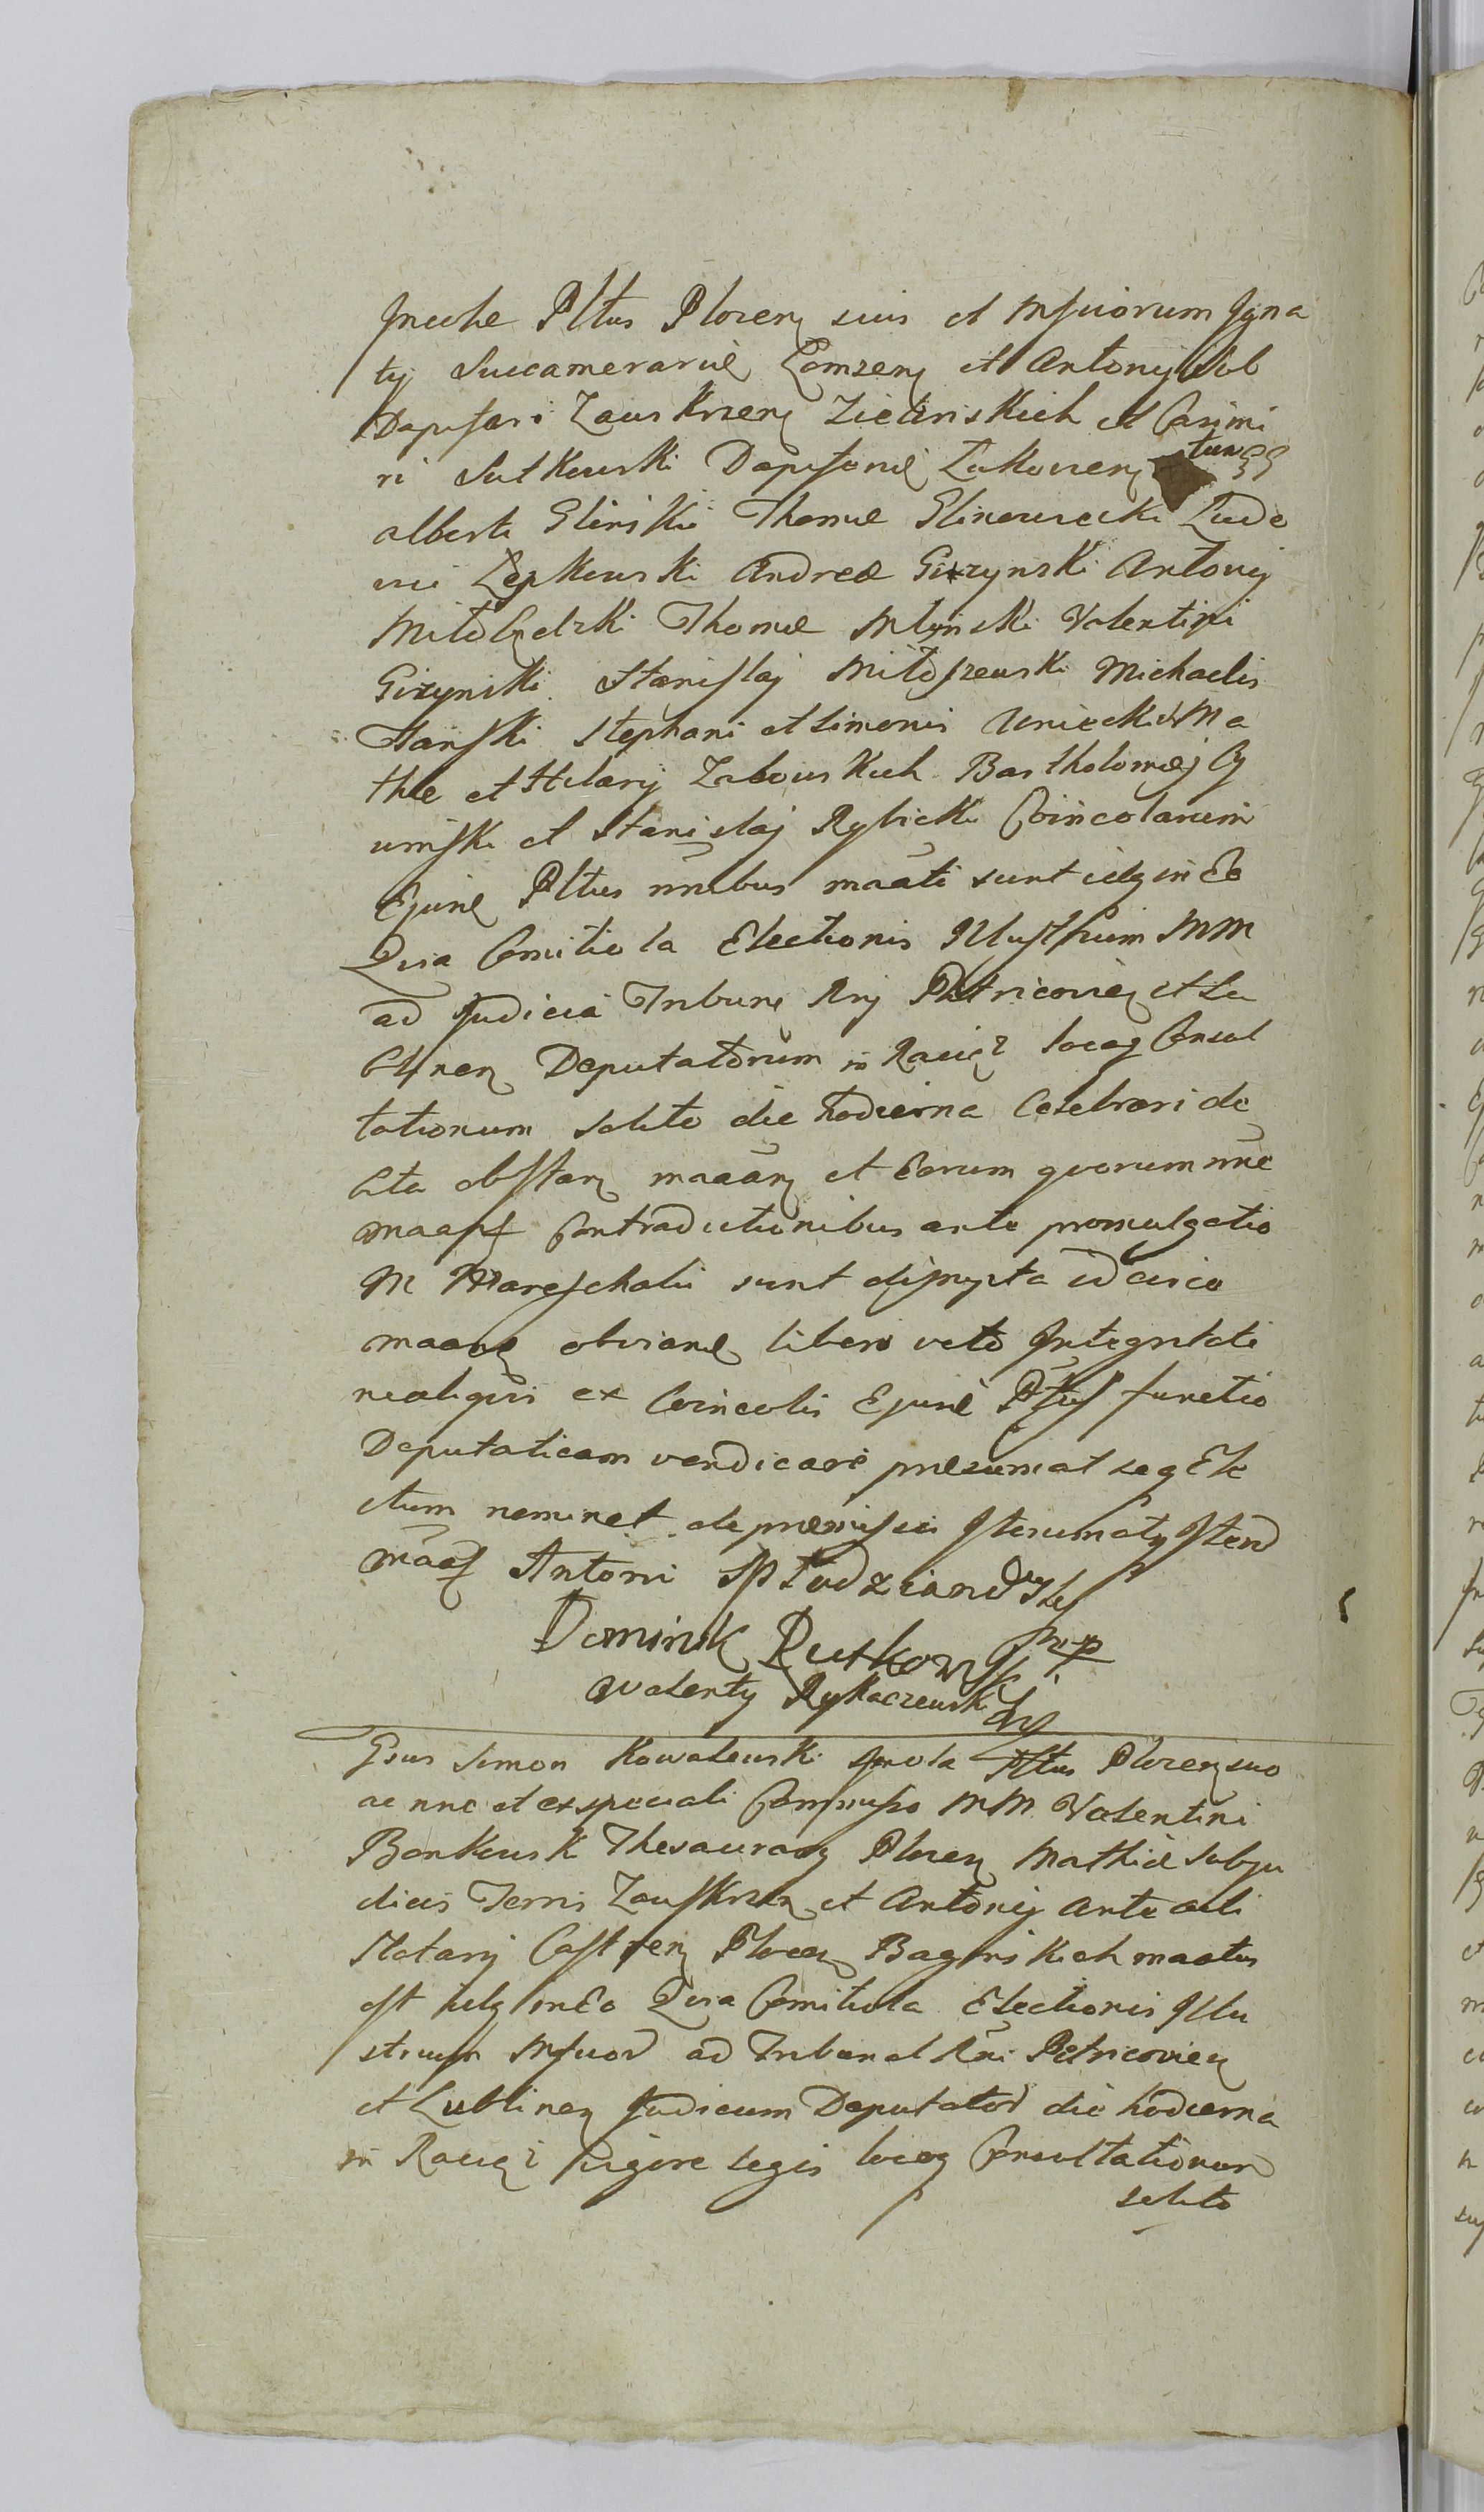 Incolæ Pltus Plocen suis et Mficorum Igna
tij Succamerarii Łomzen et Antonij Sub
Dapiferi Zawskrzen Zielinskich et Casimi
ri Sutkowski Dapiferi Łukovien tum GG
alberti Glinski Thomæ Glinowiecki Ludo
vici Lępkowski Andreæ Giżynski Antonij
Miłobędzki Thomæ Młynski Valentini
Giżynski Stanislaj Miłoszewski Michaelis
Stanski Stephani et Simonis Uniecki Ma
thiæ et Hilarij Zabowskich Bartholomæj Cy
umski et Stanislaj Rybicki Coincolarum
Ejusd Pltus nnibus maati sunt idq in Eo
Quia Comitiola Electionis Illustrium MM
ad Judicia Tribunc Rnj Petricovien et Lu
blinen Deputatorum in Raciąż locoq Consul
tationum solito die hodierna Celebrari de
bita obstan maaon et Eorum quorum nne
maast Contradictionibus ante promulgatio
M Mareschalii sunt disrupta idcirco
maaon obviand libero veto Integritati
ne aliquis ex Coincolis Ejusd Pltus functio
Deputaticam vendicare præsumat seq Ele
ctum nominet de præmissis Iterumatq Iterd
maast Antoni Młodzianowski
Dominik Rutkowski mp
Walenty Rykaczewski
Gsus Simon Kowalewski Incola Pltus Plocen suo
ac nnc et ex speciali Commisso MM Valentini
Bonkowsk Thesaurarij Plocen Mathiæ Subju
dicis Terris Zawskrzen et Antonij Ante acti
Notarij Castren Plocen Baginskich maatus
est idq in Eo Quia Comitiola Electionis Illu
strium Mficor ad Tribunal Rni Petricovien
et Lublinen Judicum Deputator die hodierna
in Raciąż vigore legis locoq Consultationum
solito